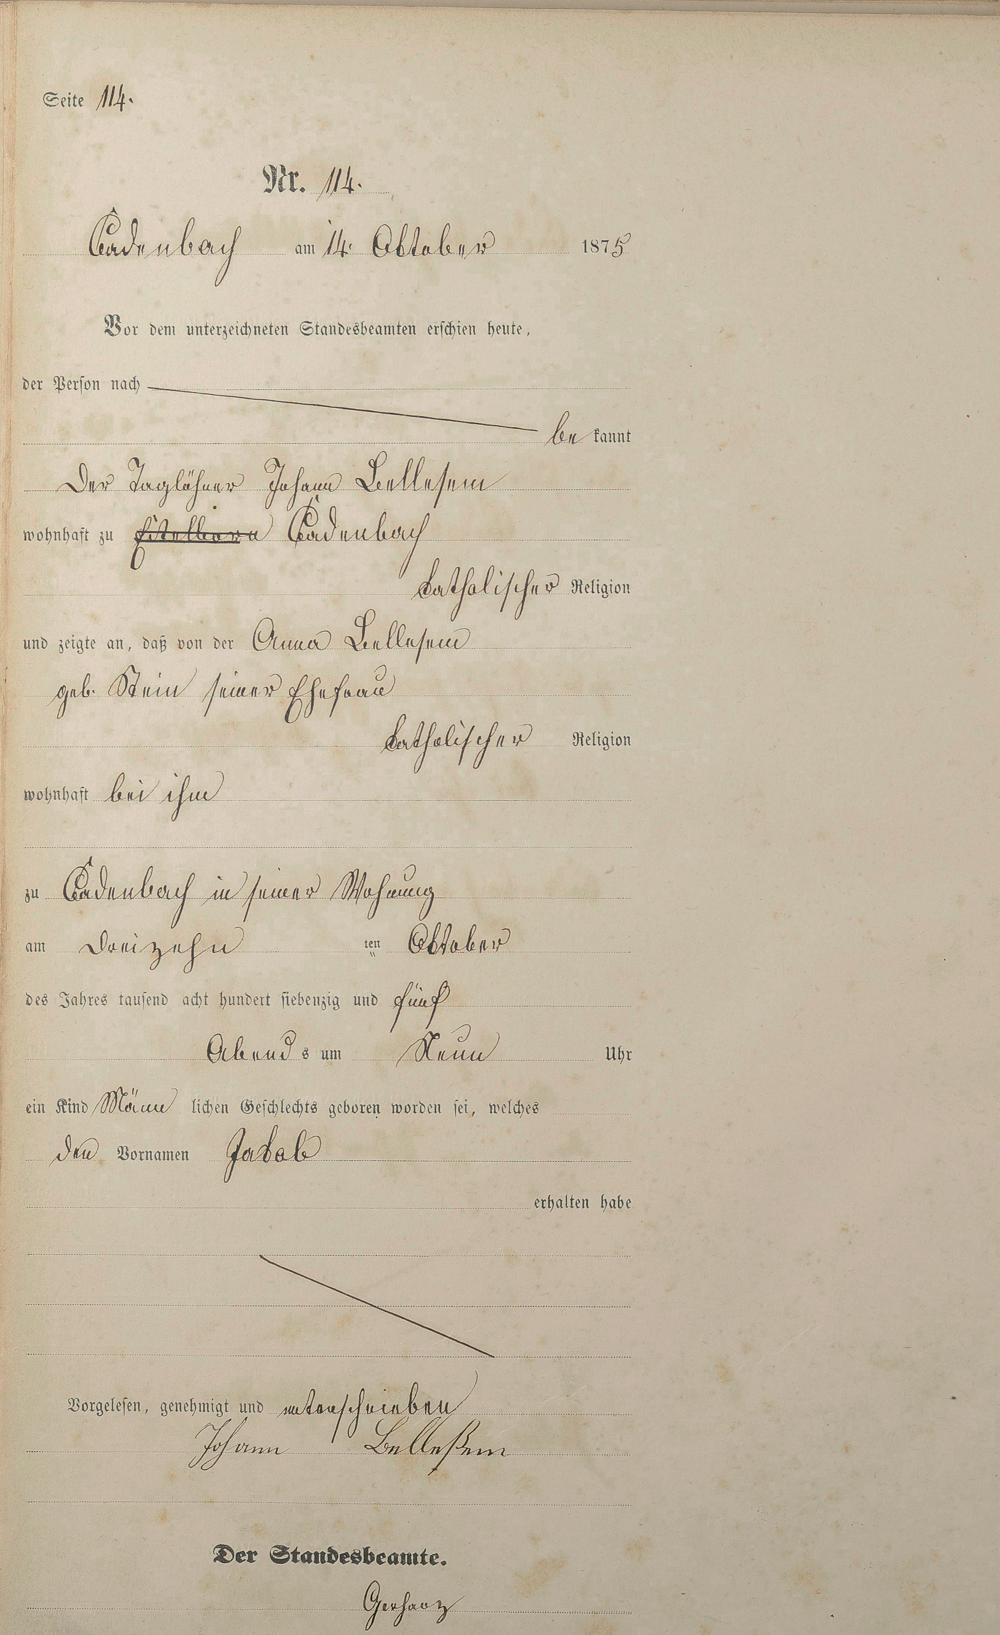 Seite 114.
Nr. 114.
Cadenbach am 14. Oktober 1875
Vor dem unterzeichneten Standesbeamten erschien heute,
der Person nach
be kannt
Der Taglöhner Johann Bellesem
wohnhaft zu Eitelborn Cadenbach
katholischer Religion
und zeigte an, daß von der Anna Bellesem
geb. Stein seiner Ehefrau
katholischer Religion
wohnhaft bei ihm
zu Cadenbach in seiner Wohnung
am Dreizehn ten Oktober
des Jahres tausend acht hundert siebenzig und fünf
Abend s um Neun Uhr
ein Kind Männ lichen Geschlechts geboren worden sei, welches
den Vornamen Jakob
erhalten habe
Vorgelesen, genehmigt und unterschrieben
Johann Belleßem
Der Standesbeamte.
Gerharz